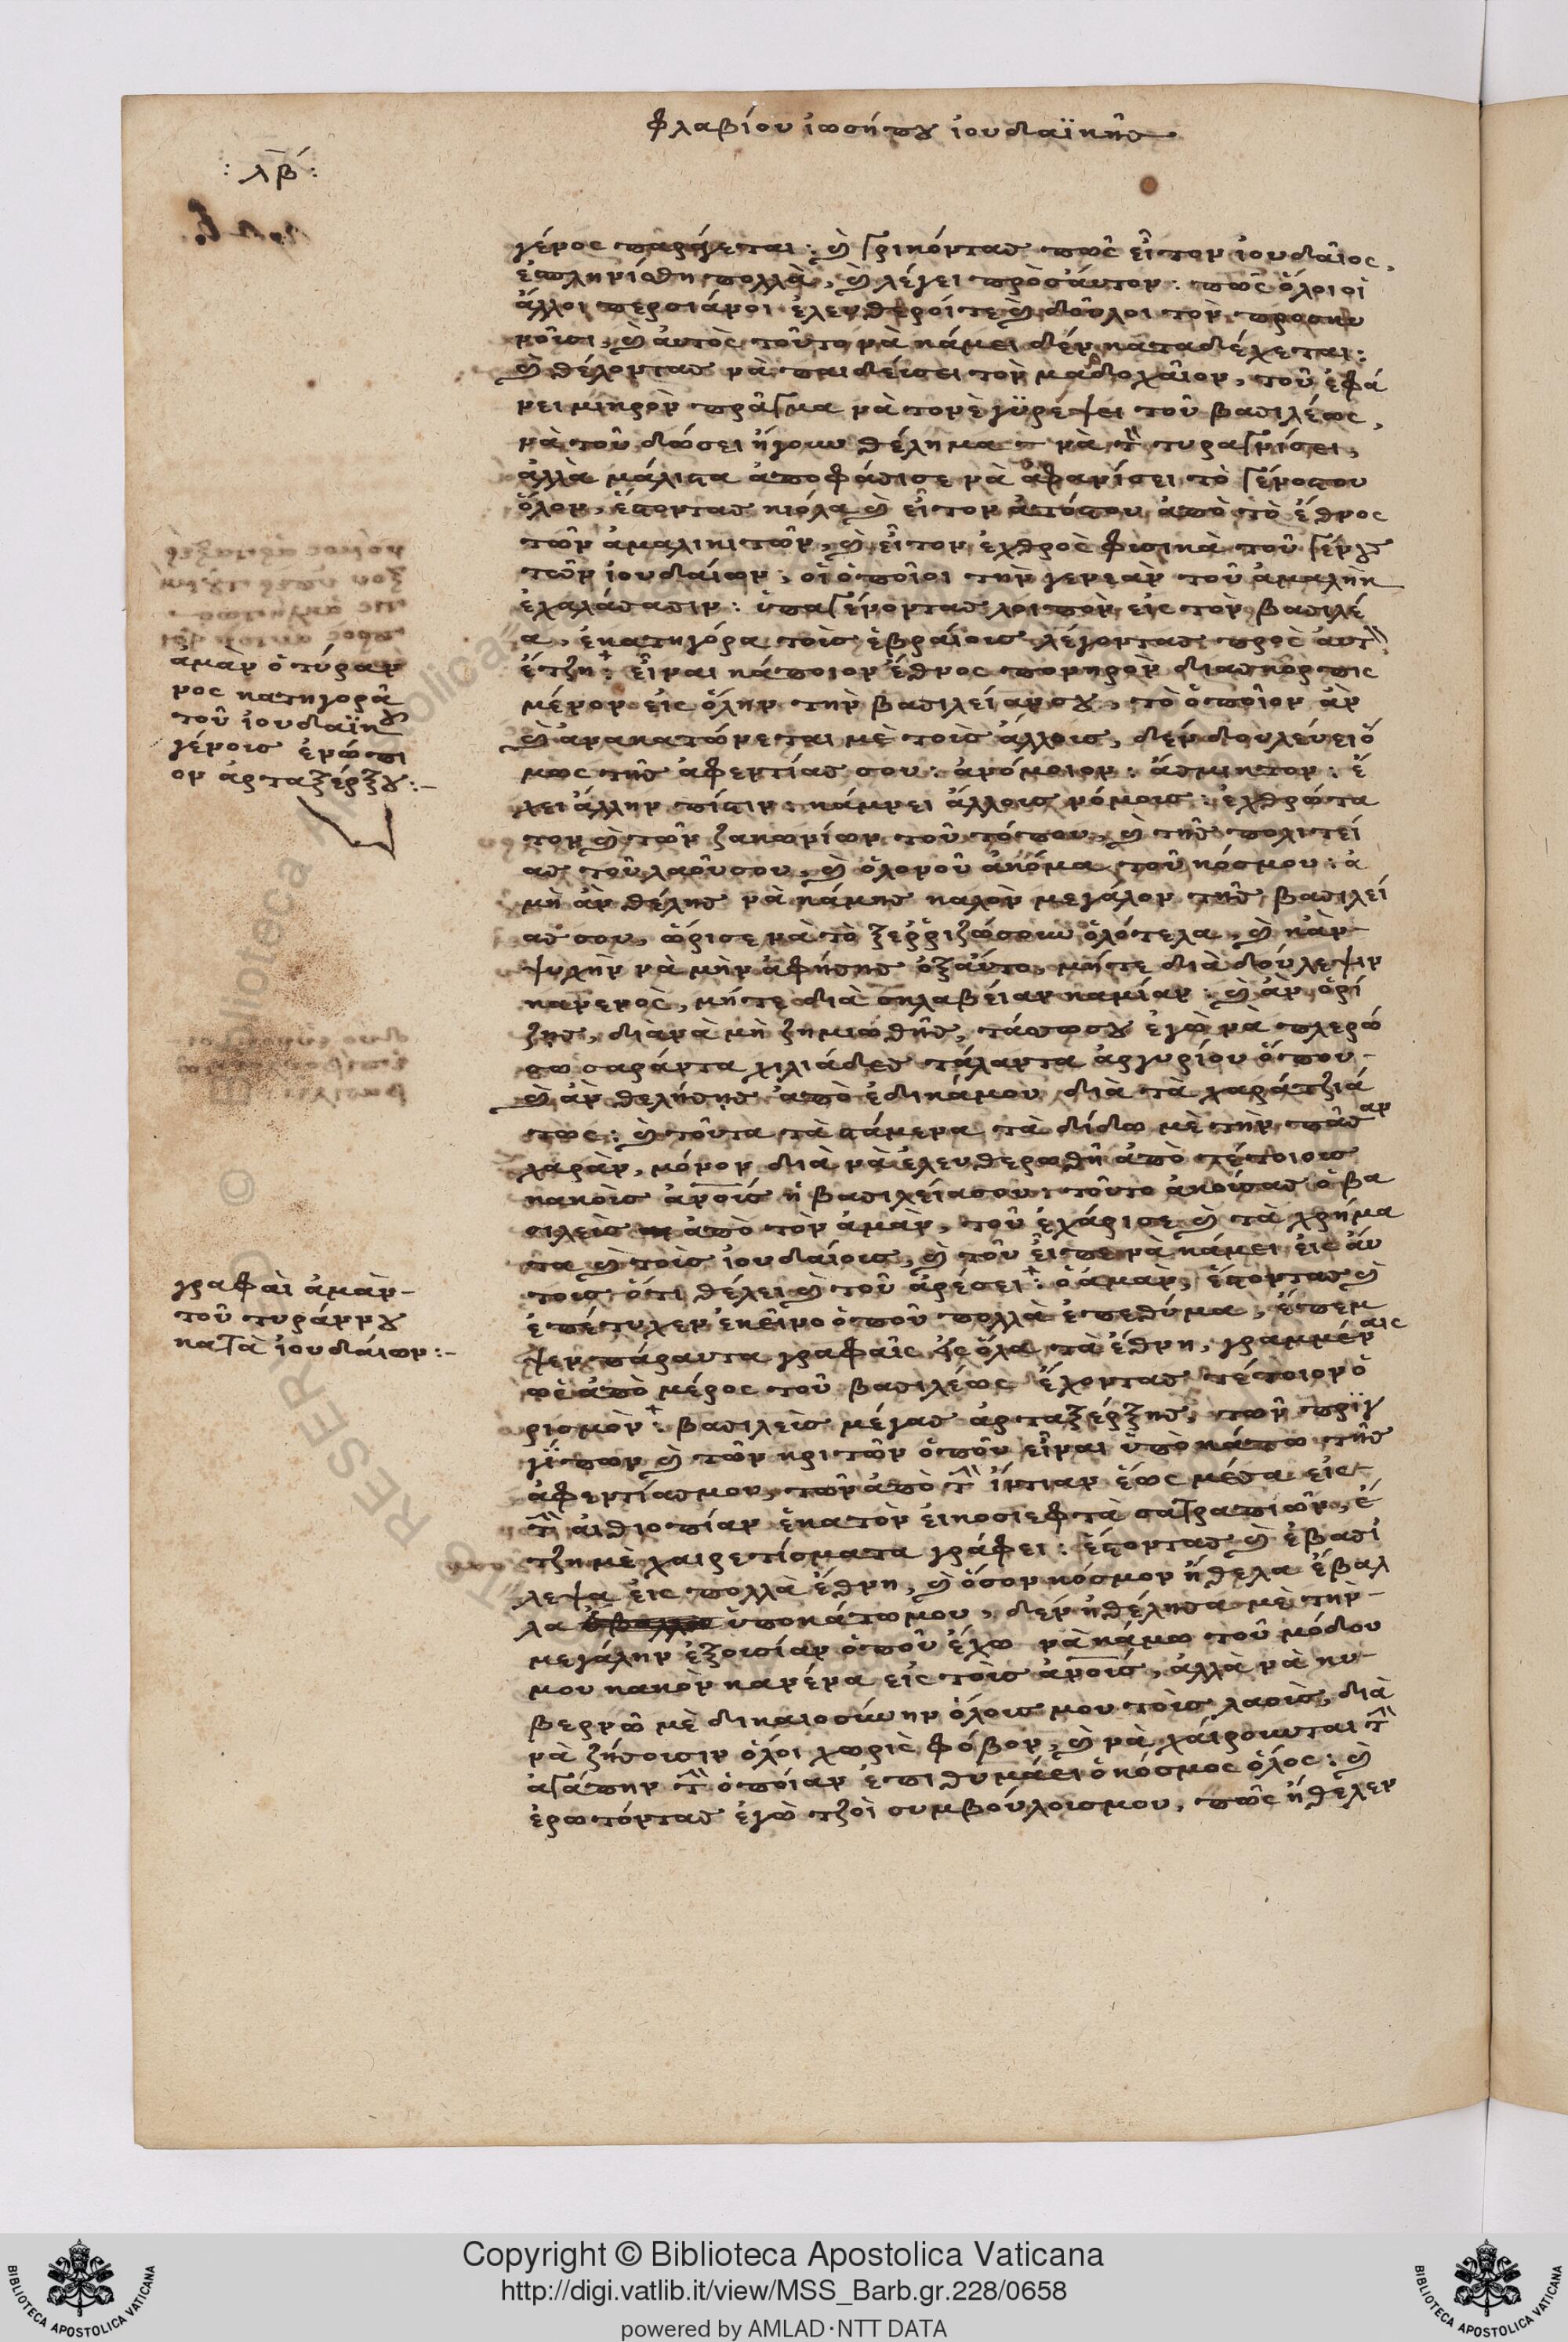 φλαβίου ἰωσήπου ἰουδαϊκῆς
: λβ :
γένος παράγεται : καὶ γρικόντας πῶς εἶτον ἰουδαῖος,
ἐπληρίσθη πολλὰ, καὶ λέγει πρὸς αὐτον : πῶς ὅλοι οἱ
ἄλλοι περσιάνοι ἐλευθεροί τε καὶ δοῦλοι τὸν προσκυ
νοῖσι, καὶ αὐτὸς τοῦτο νὰ κάμει δέν καταδέχεται :
καὶ θέλοντας νὰ παιδεύσει τὸν μαδοχαῖον, τοῦ ἐφά
νει μικρὸν πρᾶγμα νὰ τον ἐγϋρέψει τοῦ βασιλέως,
νὰ τοῦ δώσει ἤγουν θέλημα νὰ τὸν τυραγνίσει,
ἀλλὰ μάλιστα ἀποφάσισε νὰ ἀφανίσει τὸ γένοςτου
ὅλον, ἔστοντας κιόλα καὶ εἶτον ἀτόςτου ἀπὸ τὸ ἔθνος
τῶν ἀμαλικιτῶν, καὶ εἶτον ἐχθρὸς φισικὰ τοῦ γένους
τῶν ἰουδαίων, οἱ ὁποῖοι τὴν γενεὰν τοῦ ἀμαλὴκ
ἐχαλάσασιν : ὑπαγένοντας λοιπὸν εἰς τὸν βασιλέ
α, ἐκατηγόρα τοὶς ἑβραίοις λέγοντας πρὸς αὐτὸν
ἔτζη : εἶναι κάποιον ἔθνος πονηρὸν διασκορπις
μένον εἰς ὅλην τὴν βασιλείανσου, τὸ ὁποῖον ἂν
καὶ ἀνακατώνεται μὲ τοὶς ἄλλοις, δέν δουλεύει ὅ
μως τῆς ἀφεντίας σου : ἀνόμοιον : ἄσμικτον : ἔ
χει ἄλλην πίστιν : κάμνει ἄλλοις νόμοις : ἐχθρότα
τον καὶ τῶν ζακωνίων τοῦ τόπου, καὶ τῆς πολιτεί
ας τοῦ λαοῦσου, καὶ ὁλονοῦ ἀκόμα τοῦ κόσμου : ἀ
μὴ ἂν θέλης νὰ κάμης καλὸν μεγάλον τῆς βασιλεί
ας σου, ὥρισε νὰ τὸ ξεῤῥιζώσουν ὁλότελα, καὶ κἀν
ψυχὴν νὰ μὴν ἀφήσης ὀξαύτο, μήτε διὰ δούλεψιν
κανενὸς, μήτε διὰ σκλαβείαν καμίαν : καὶ ἂν ὁρί
ζης, διὰ νὰ μὴ ζημιωθῆς, τάσσωσου ἐγὼ νὰ πλερώ
σω σαράντα χιλιάδες τάλαντα ἀργυρίου ὅπου
καὶ ἂν θελήσης ἀπὸ ἐδικάμου διὰ τὰ χαράτζιά
τως : καὶ τοῦτα τὰ στάμενα τὰ δίδω μὲ τὴν πᾶσαν
χαρὰν, μόνον διὰ νὰ ἐλευθερωθῆ ἀπὸ τέτοιοις
κακοὶς ἀνοὶς ἡ βασιλείασου : τοῦτο ἀκούσας ὁ βα
σιλεὶς ἀπὸ τὸν ἀμὰν, τοῦ ἐχάρισε καὶ τὰ χρήμα
τα καὶ τοὶς ἰουδαίοις, καὶ τοῦ εἶπε νὰ κάμει εἰς αὐ
τοις ὅτι θέλει καὶ τοῦ ἀρέσει : ὁ ἀμὰν, ἔστοντας καὶ
ἐπέτυχεν ἐκεῖνο ὁποῦ πολλὰ ἐπεθύμα, ἔπεμ
ψεν πάραυτα γραφαὶς εἰς ὅλα τὰ ἔθνη, γραμμέναις
φὲ ἀπὸ μέρος τοῦ βασιλέως ἔχοντας τέτοιον ὁ
ρισμὸν : βασιλεὶς μέγας ἀρταξέρξης, τῶν πρϊγ
γίπων καὶ τῶν κριτῶν ὁποῦ εἶναι ὑποκάτω τῆς
ἀφεντίασμου, τῶν ἀπὸ τὴν ἰντιαν ἕως μέσα εἰς
τὴν αἰθιοπίαν ἑκατὸν εἰκοσιεφτὰ σατραπιῶν, ἔ
τζη μὲ χαιρετίσματα γράφει : ἔστοντας καὶ ἐβασί
λεψα εἰς πολλὰ ἔθνη, καὶ ὅσον κόσμον ἤθελα ἔβαλ
λα ὑποκάτωμου, δέν ἠθέλησα μὲ τὴν
μεγάλην ἐξουσίαν ὁποῦ ἔχω νὰ κάμω τοῦ μόδου
μου κακὸν κανένα εἰς τοὶς ἀνοὶς, ἀλλὰ νὰ κυ
βερνῶ μὲ δικαιοσύνην ὅλοις μου τοὶς λαοὶς, διὰ
νὰ ζήσοισιν ὅλοι χωρὶς φόβον, καὶ νὰ χαίρουνται τὴν
ἀγάπην τὴν ὁποίαν ἐπιθυμάει ὁ κόσμος ὅλος : καὶ
ἐρωτόντας ἐγὼ τζοὶ συμβούλοισμου, πῶς ἤθελεν
ἀμὰν ὁ τύραν
νος κατηγορᾶ
τοῦ ἰουδαϊκοῦ
γένοις ἐνώπι
ον ἀρταξέρξου :-
γραφαὶ ἀμὰν
τοῦ τυράννου
κατὰ ἰουδαίων :-
Copyright © Biblioteca Apostolica Vaticana
http://digi.vatlib.it/view/MSS_Barb.gr.228/0658
powered by AMLAD·NTT DATA
BIBLIOTECA APOSTOLICA VATICANA
BIBLIOTECA APOSTOLICA VATICANA